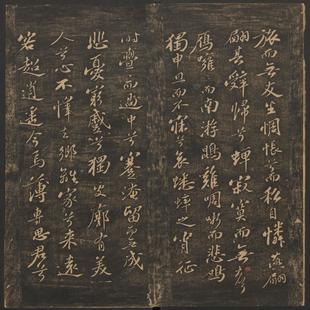 旅而無友生惆悵兮而私自憐燕翩
翩其辭歸兮蟬寂寞而無聲
雁雝而南游鵾雞啁哳而悲鳴
獨申旦而不寐兮哀蟋蟀之宵征
時亹而過中兮蹇淹留無成
悲憂窮蹙兮獨處廓有美一
人兮心不懌去鄉離家兮來遠
客超逍遙今焉薄專思君兮